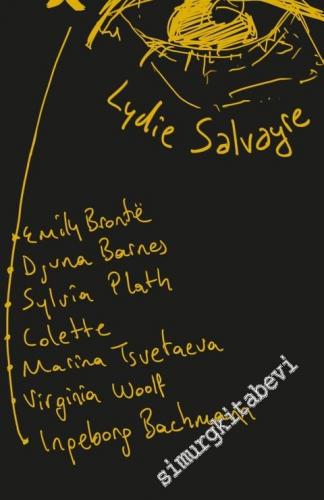 Lydie Salvayre
Emily Brontë
Djuna Barnes
Sylvia Plath
Colette
Marina Tsvetaeva
Virginia Woolf
Ingeborg Bachmann
simurgkitabevi